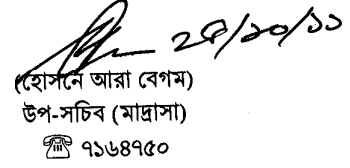 ২৪/১০/১১
(হোসনে আরা বেগম)
উপ-সচিব (মাদ্রাসা)
☎ ৭১৬৪৭৫০